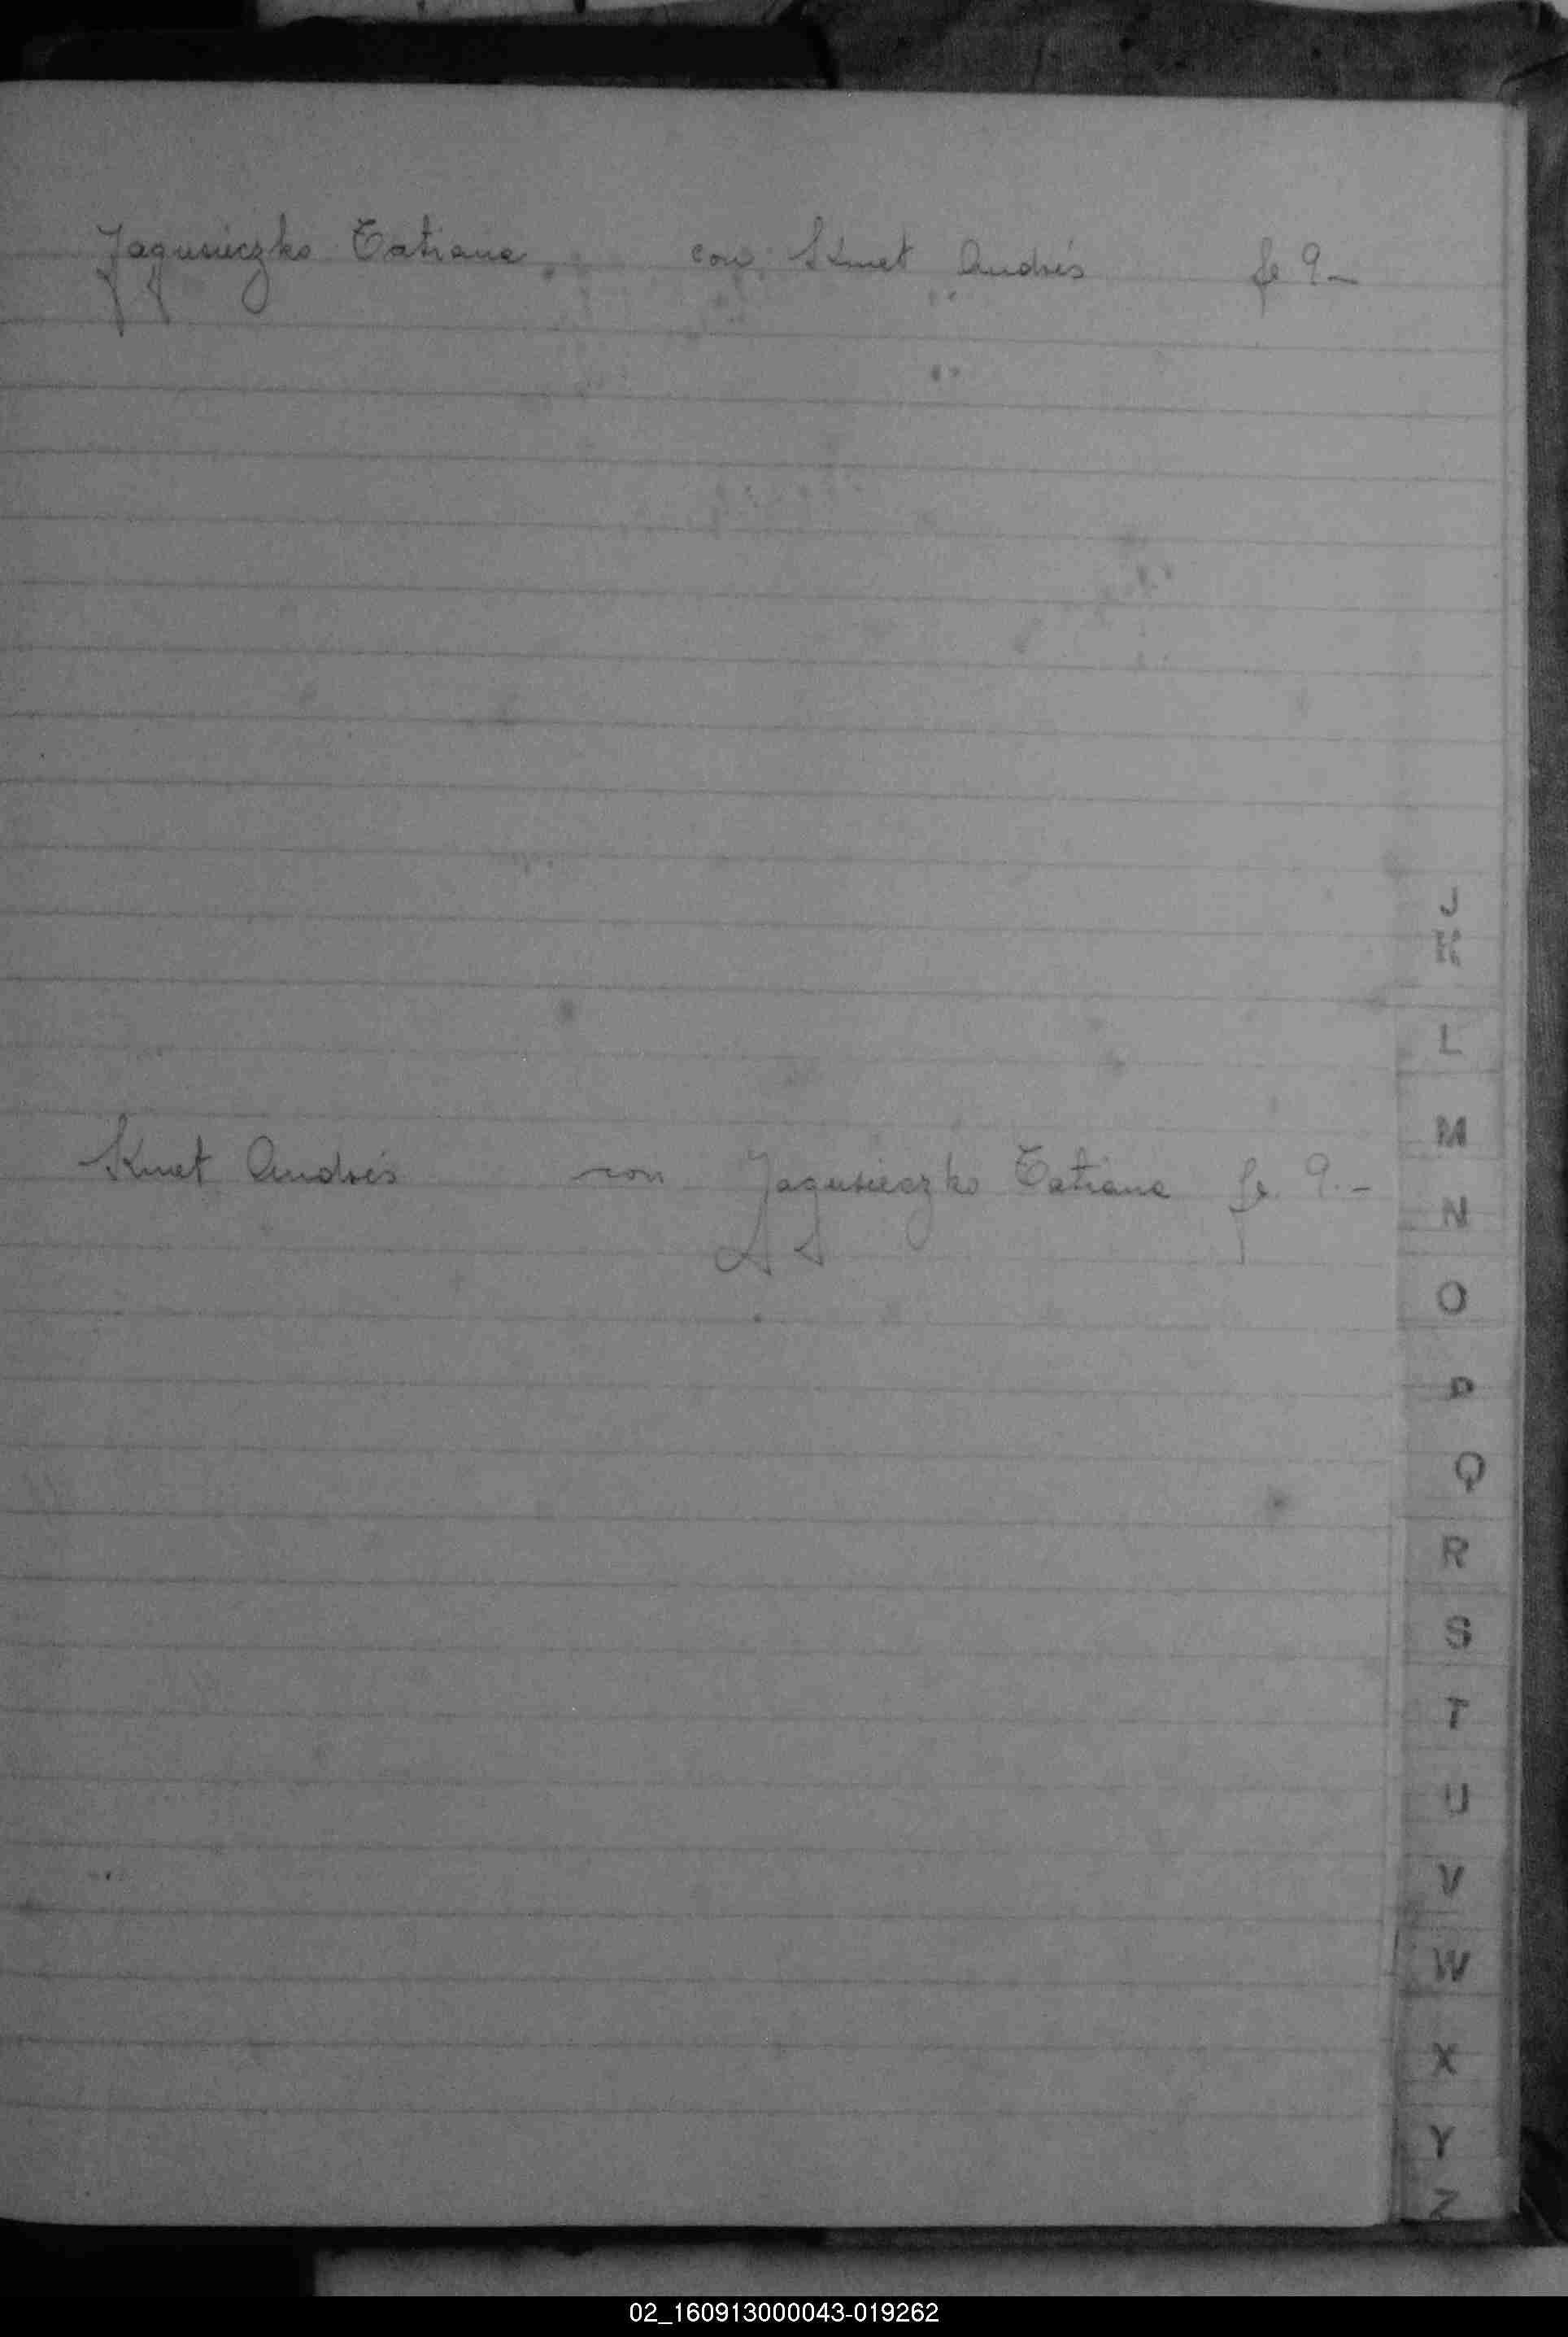 Jagusieczko Tatiana con Kmet Andrés fs 9-
J
K
L
Kmet Andrés con Jagusieczko Tatiana fs. 9.-
M
N
O
P
Q
R
S
T
U
V
W
X
Y
Z
02_160913000043-019262